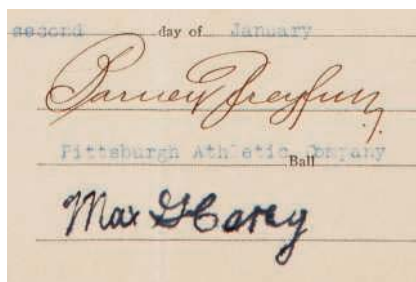 second day of January
Barney Dreyfuss
Pittsburgh Athletic Company
Ball
Max G Carey